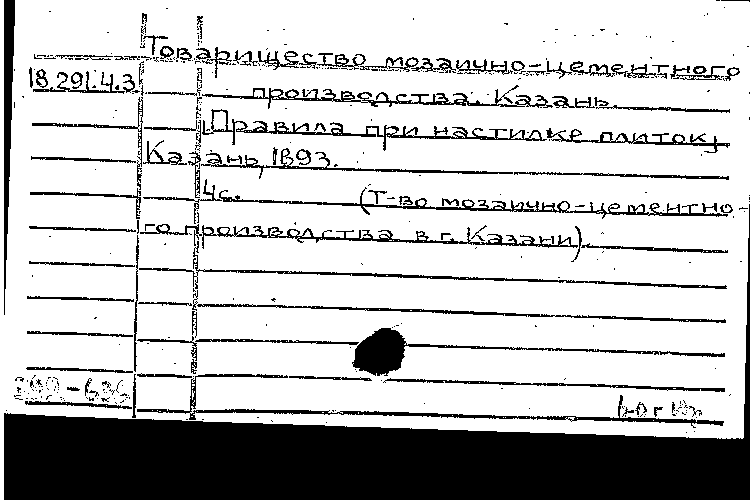 Товарищество мозаично-цементного
18.291.4.3
производства. Казань.
[Правила при настилке плиток]
Казань, 1893.
4с. (Т-во мозаично-цементно-
го производства в г. Казани).